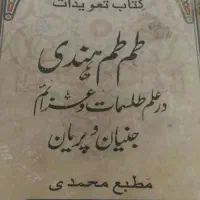 کتاب تعویذات
طم طم ہندی
در علم طلسمات و عزائم
جنیان و پریان
مطبع محمدی